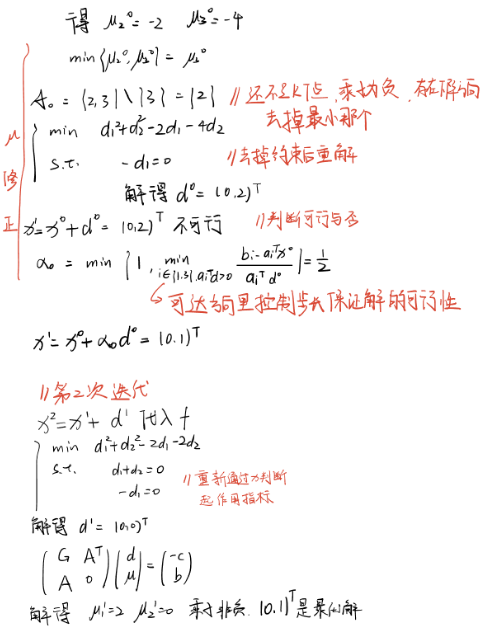 得 μ₂⁰=-2 μ₃⁰=-4
min{μ₂⁰, μ₃⁰} = μ₃⁰
A₀ = {2,3}\{3} = {2} //还不是KT点,乘子为负,存在下降方向
去掉最小那个
min d₁²+d₂²-2d₁-4d₂
s.t. -d₁=0 //去掉约束后重解
μ修正
解得 d⁰=(0,2)ᵀ
x¹=x⁰+d⁰=(0,2)ᵀ 不可行 //判断可行与否
α₀ = min {1, min i∈{1,3}, aᵢᵀd>0 (bᵢ-aᵢᵀx⁰)/(aᵢᵀd⁰)}=1/2
可达方向里控制步长保证解的可行性
x¹=x⁰+α₀d⁰=(0,1)ᵀ
//第2次迭代
x²=x¹+d¹ 代入f
min d₁²+d₂²-2d₁-2d₂
s.t. d₁+d₂=0
-d₁=0
//重新通过x判断
起作用指标
解得 d¹=(0,0)ᵀ
(G Aᵀ; A 0)(d; μ)=(-c; b)
解得 μ₁¹=2 μ₂¹=0 乘子非负.(0,1)ᵀ是最优解